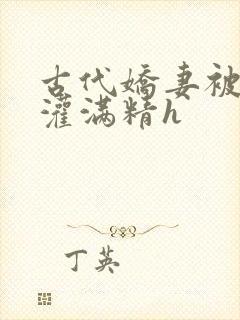 古代嬌妻被
灌满精h
丁英